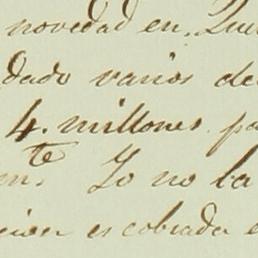 novedad en Que
dado varios de
4. millones pa
te
m. Yo no la
cion es cobrada e